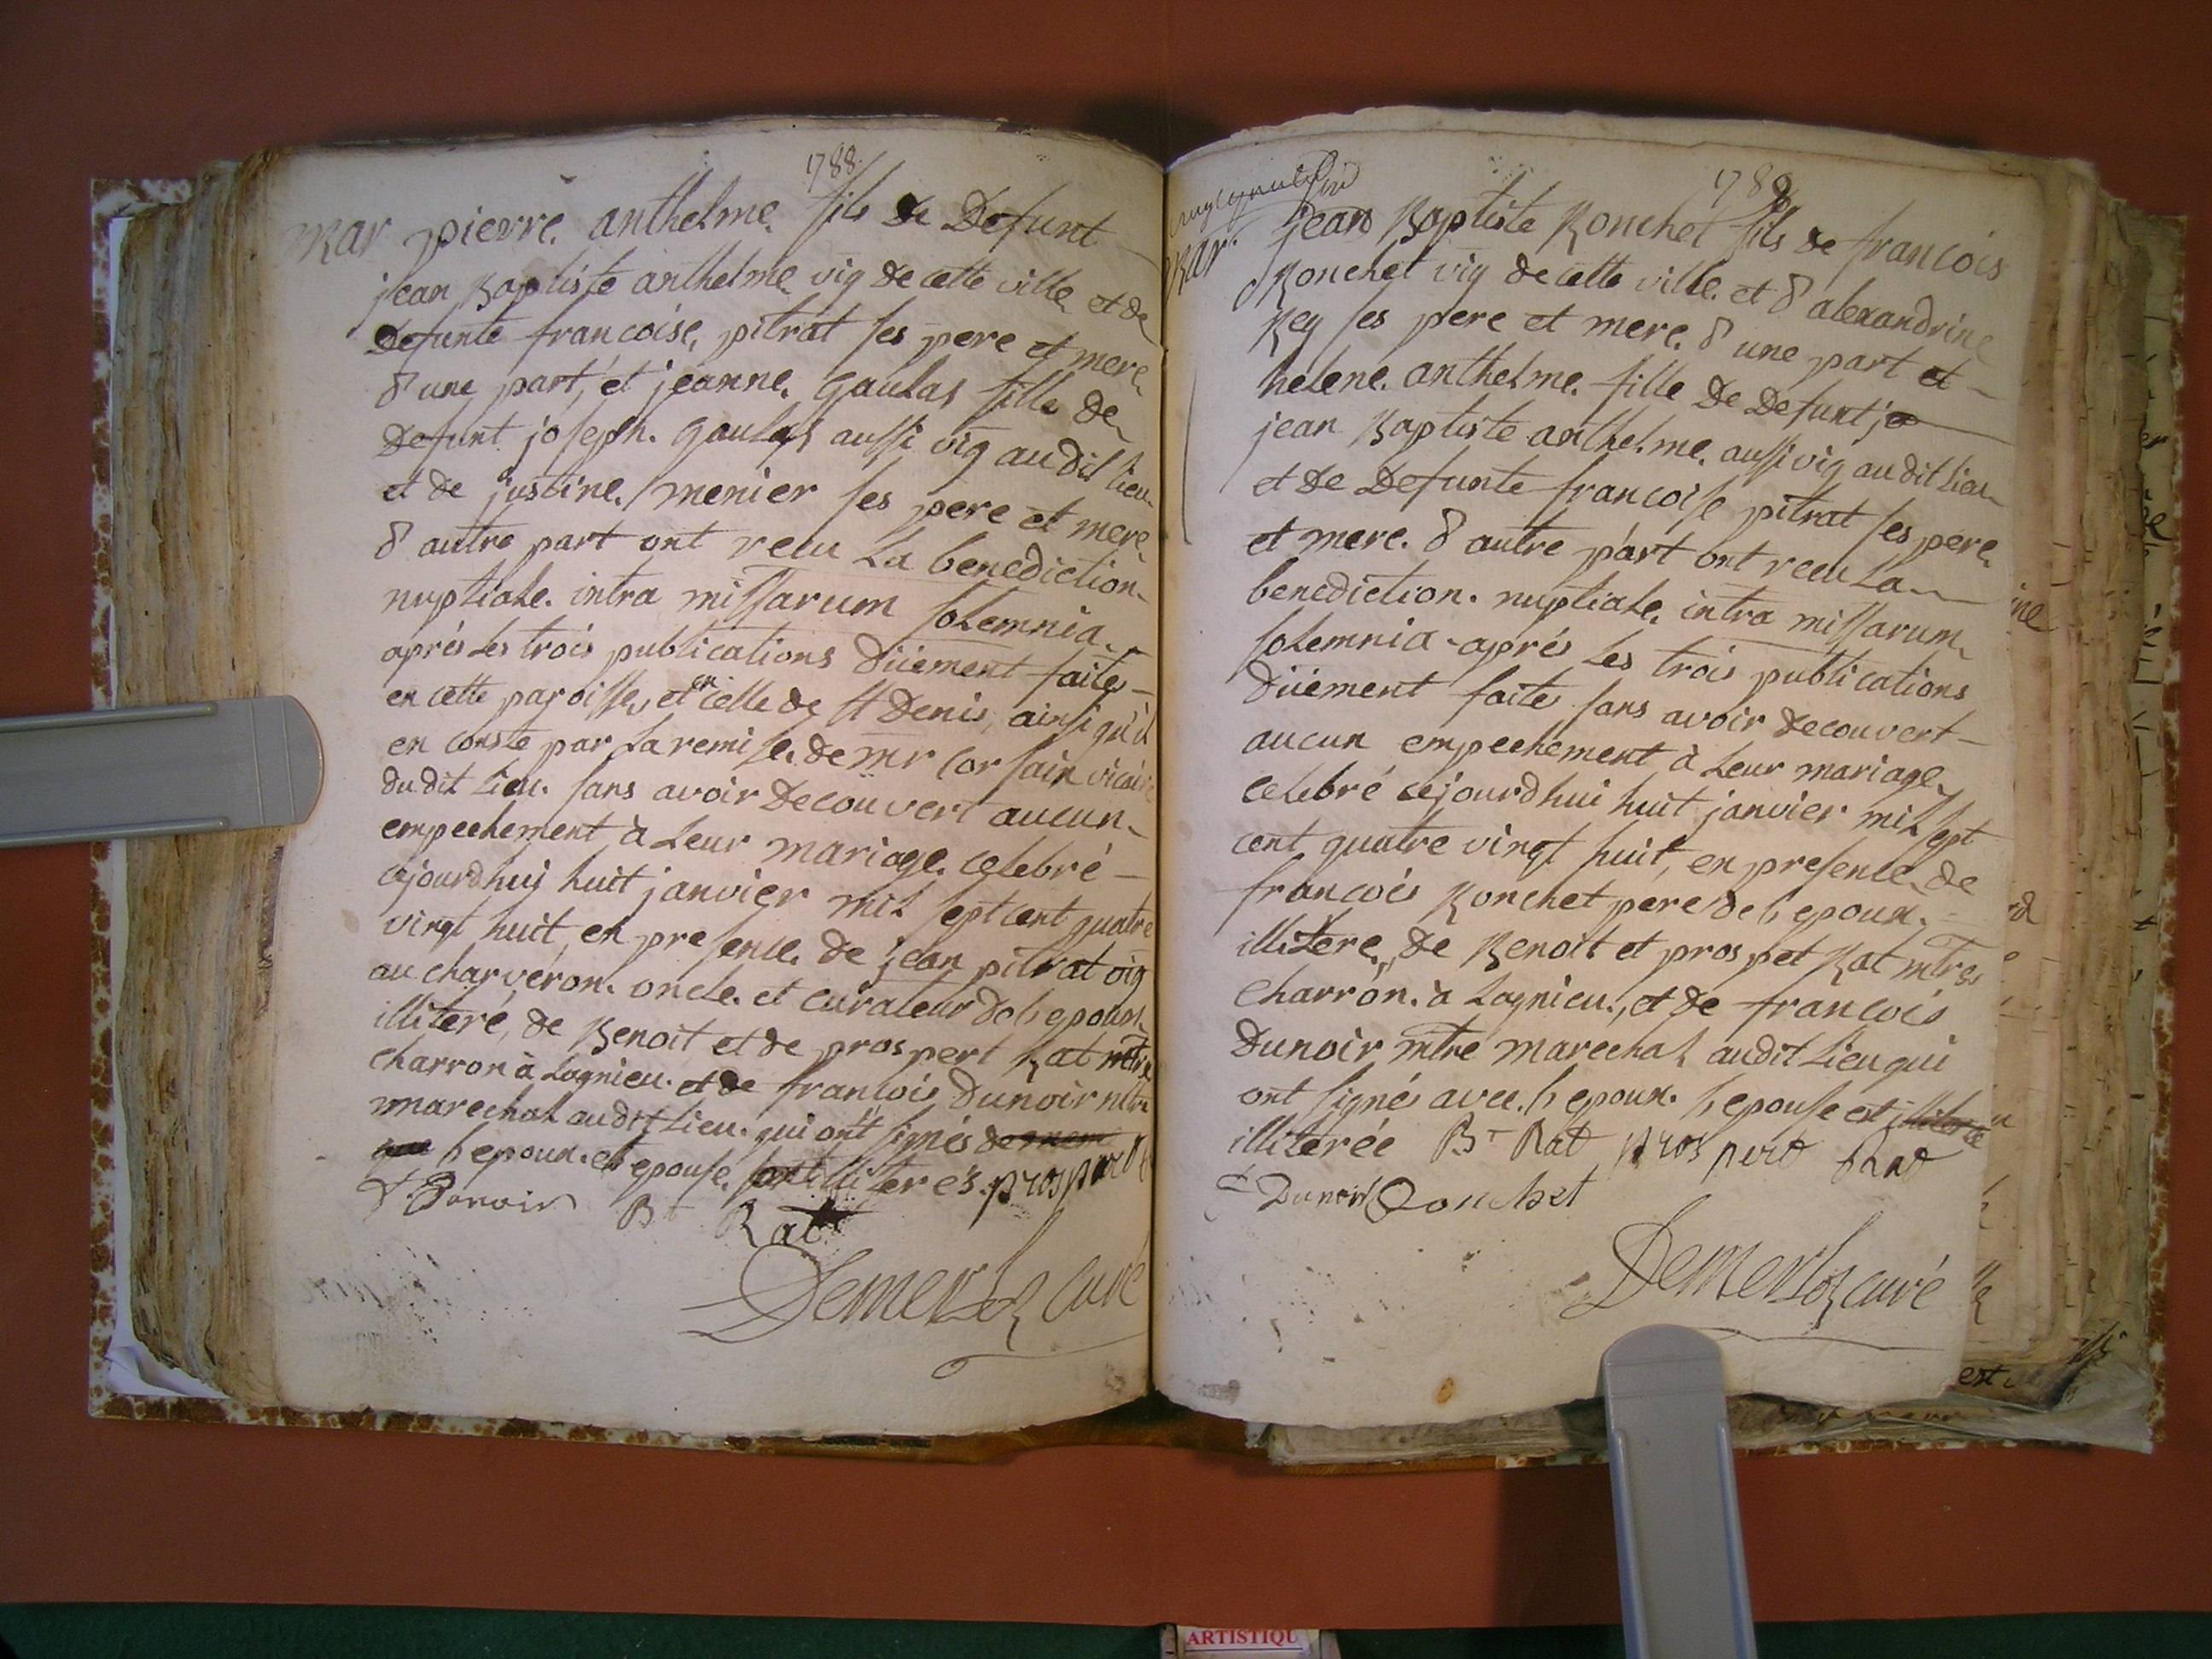 1788
mar pierre. anthelme. fils de Defunt
jean Baptiste anthelme vig de cette ville et de
Defunte francoise, pitrat ses pere et mere
d'une part, et jeanne. gaulas fille de
Defunt joseph. gaulas aussi vig au dit lieu
et de justine. menier ses pere et mere
d'autre part ont recu La benediction
nuptiale. intra missarum solemnia
aprés les trois publications düement faites
en cette paroisse, et en celle de st Denis, ainsi qu'il
en conste par la remise. de mr corsain vicaire
du dit Lieu. sans avoir Decouvert aucun
empechement à Leur mariage. celebré
cejourdhuy huit janvier mil sept cent quatre
vingt huit, en presence. de jean pitrat vig
au charveron. oncle. et curateur de l'epoux
illiteré, de Benoit et de prospert Rat mtre
charron à Lagnieu. et de francois Dunoir mtre
marechal audit Lieu. qui ont signés
l'epoux. et epouse. sont illiterés. prospert
f Dunoir Bt Rat
Demerloz curé
1788
mar. jean Baptiste Ronchet fils de francois
Ronchet vig de cette ville. et d'alexandrine
Rey ses pere et mere. d'une part et
helene. anthelme. fille De Defunt je
jean Baptiste anthelme. aussi vig audit Lieu
et de Defunte francoise pitrat ses pere
et mere. d'autre part ont recu La
benediction. nuptiale. intra missarum
solemnia aprés Les trois publications
düement faites sans avoir decouvert
aucun empechement à Leur mariage
celebré cejourdhui huit janvier mil sept
cent quatre vingt huit, en presence de
francois Ronchet pere de l'epoux.
illitere, de Benoit et prospet Rat mtres
charron. à Lagnieu, et de francois
Dunoir mtre marechal audit Lieu qui
ont signés avec. l'epoux. l'epouse est
illiterée Bt Rat prospert Rat
f Dunoir Ronchet
Demerloz curé
ARTISTIQU